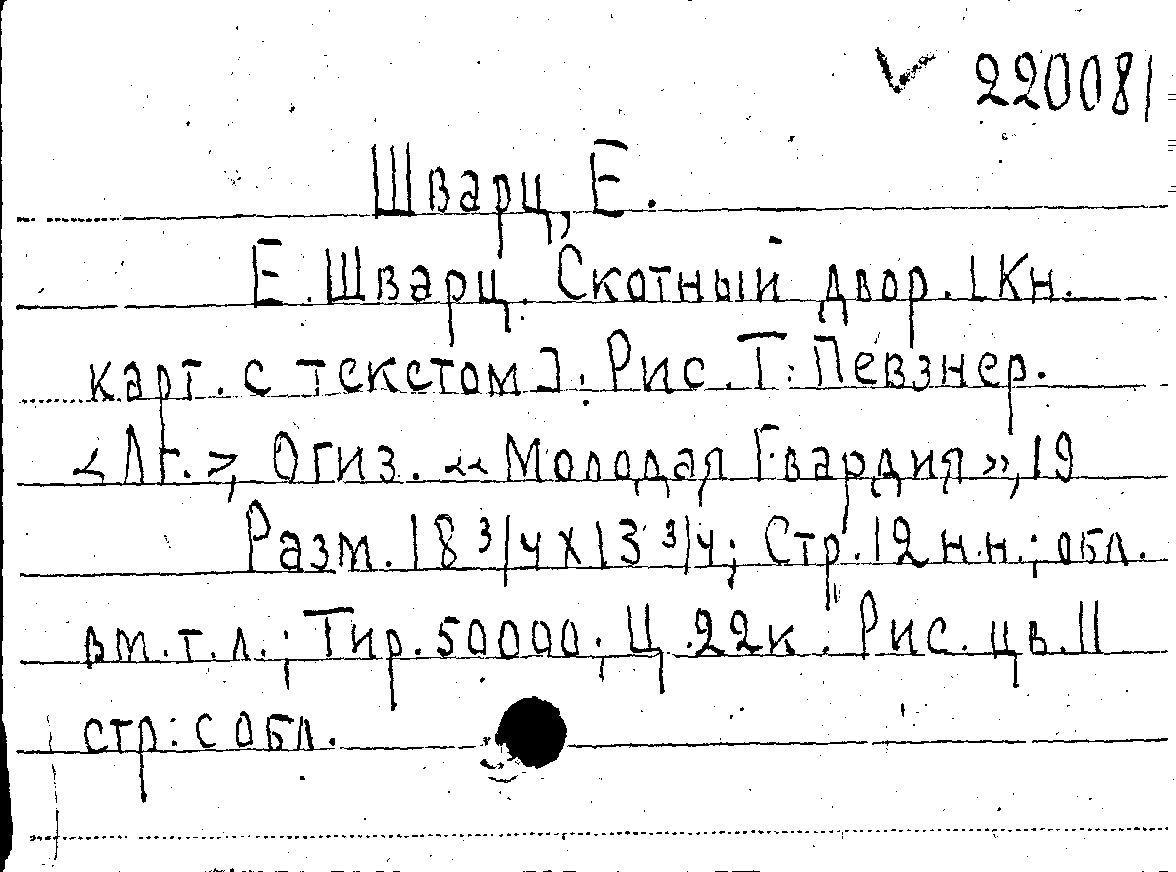 ✓ 220081
Шварц, Е.
Е. Шварц. Скотный двор. [Кн.
карт. с текстом]. Рис. Т. Певзнер.
«Лг.», Огиз. «Молодая Гвардия», 19
Разм. 18 3/4 х 13 3/4; Стр. 12 н.н.; обл.
вм. т. л.; Тир. 50000; Ц. 22к. Рис. цв. 11
стр. с обл.